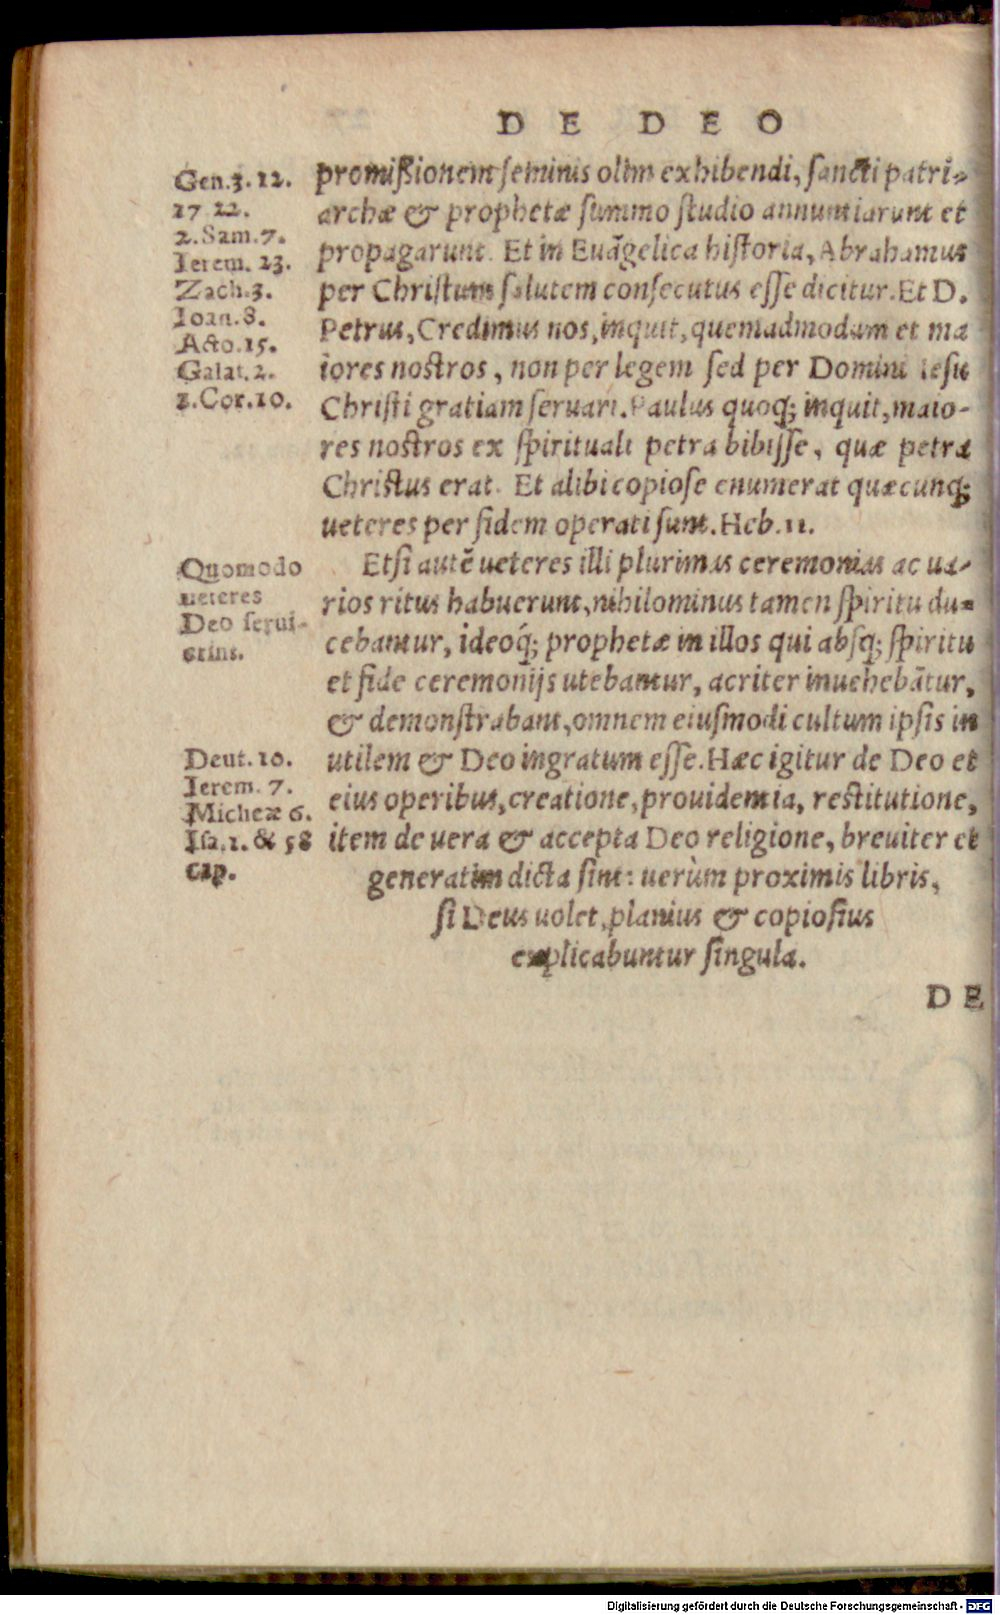 DE DEO
Gen. 3. 12.
17 22.
2. Sam. 7.
Ierem. 23.
Zach. 3.
Ioan. 8.
Acto. 15.
Galat. 2.
1. Cor. 10.
promißionem seminis olim exhibendi, sancti patri-
archæ & prophetæ summo studio annuntiarunt et
propagarunt. Et in Euãgelica historia, Abrahamus
per Christum salutem consecutus esse dicitur. Et D.
Petrus, Credimus nos, inquit, quemadmodum et ma
iores nostros, non per legem sed per Domini Iesu
Christi gratiam seruari. Paulus quoq; inquit, maio-
res nostros ex spirituali petra bibisse, quæ petra
Christus erat. Et alibi copiose enumerat quæcunq;
ueteres per fidem operati sunt. Heb. 11.
Quomodo
ueteres
Deo serui-
erint.
Etsi autẽ ueteres illi plurimas ceremonias ac ua-
rios ritus habuerunt, nihilominus tamen spiritu du-
cebantur, ideoq́; prophetæ in illos qui absq; spiritu
et fide ceremonijs utebantur, acriter inuehebãtur,
& demonstrabant, omnem eiusmodi cultum ipsis in
utilem & Deo ingratum esse. Hæc igitur de Deo et
eius operibus, creatione, prouidentia, restitutione,
item de uera & accepta Deo religione, breuiter et
generatim dicta sint: uerùm proximis libris,
si Deus uolet, planius & copiosius
explicabuntur singula.
Deut. 10.
Ierem. 7.
Micheæ 6.
Isa. 1. & 58
cap.
DE
Digitalisierung gefördert durch die Deutsche Forschungsgemeinschaft - DFG